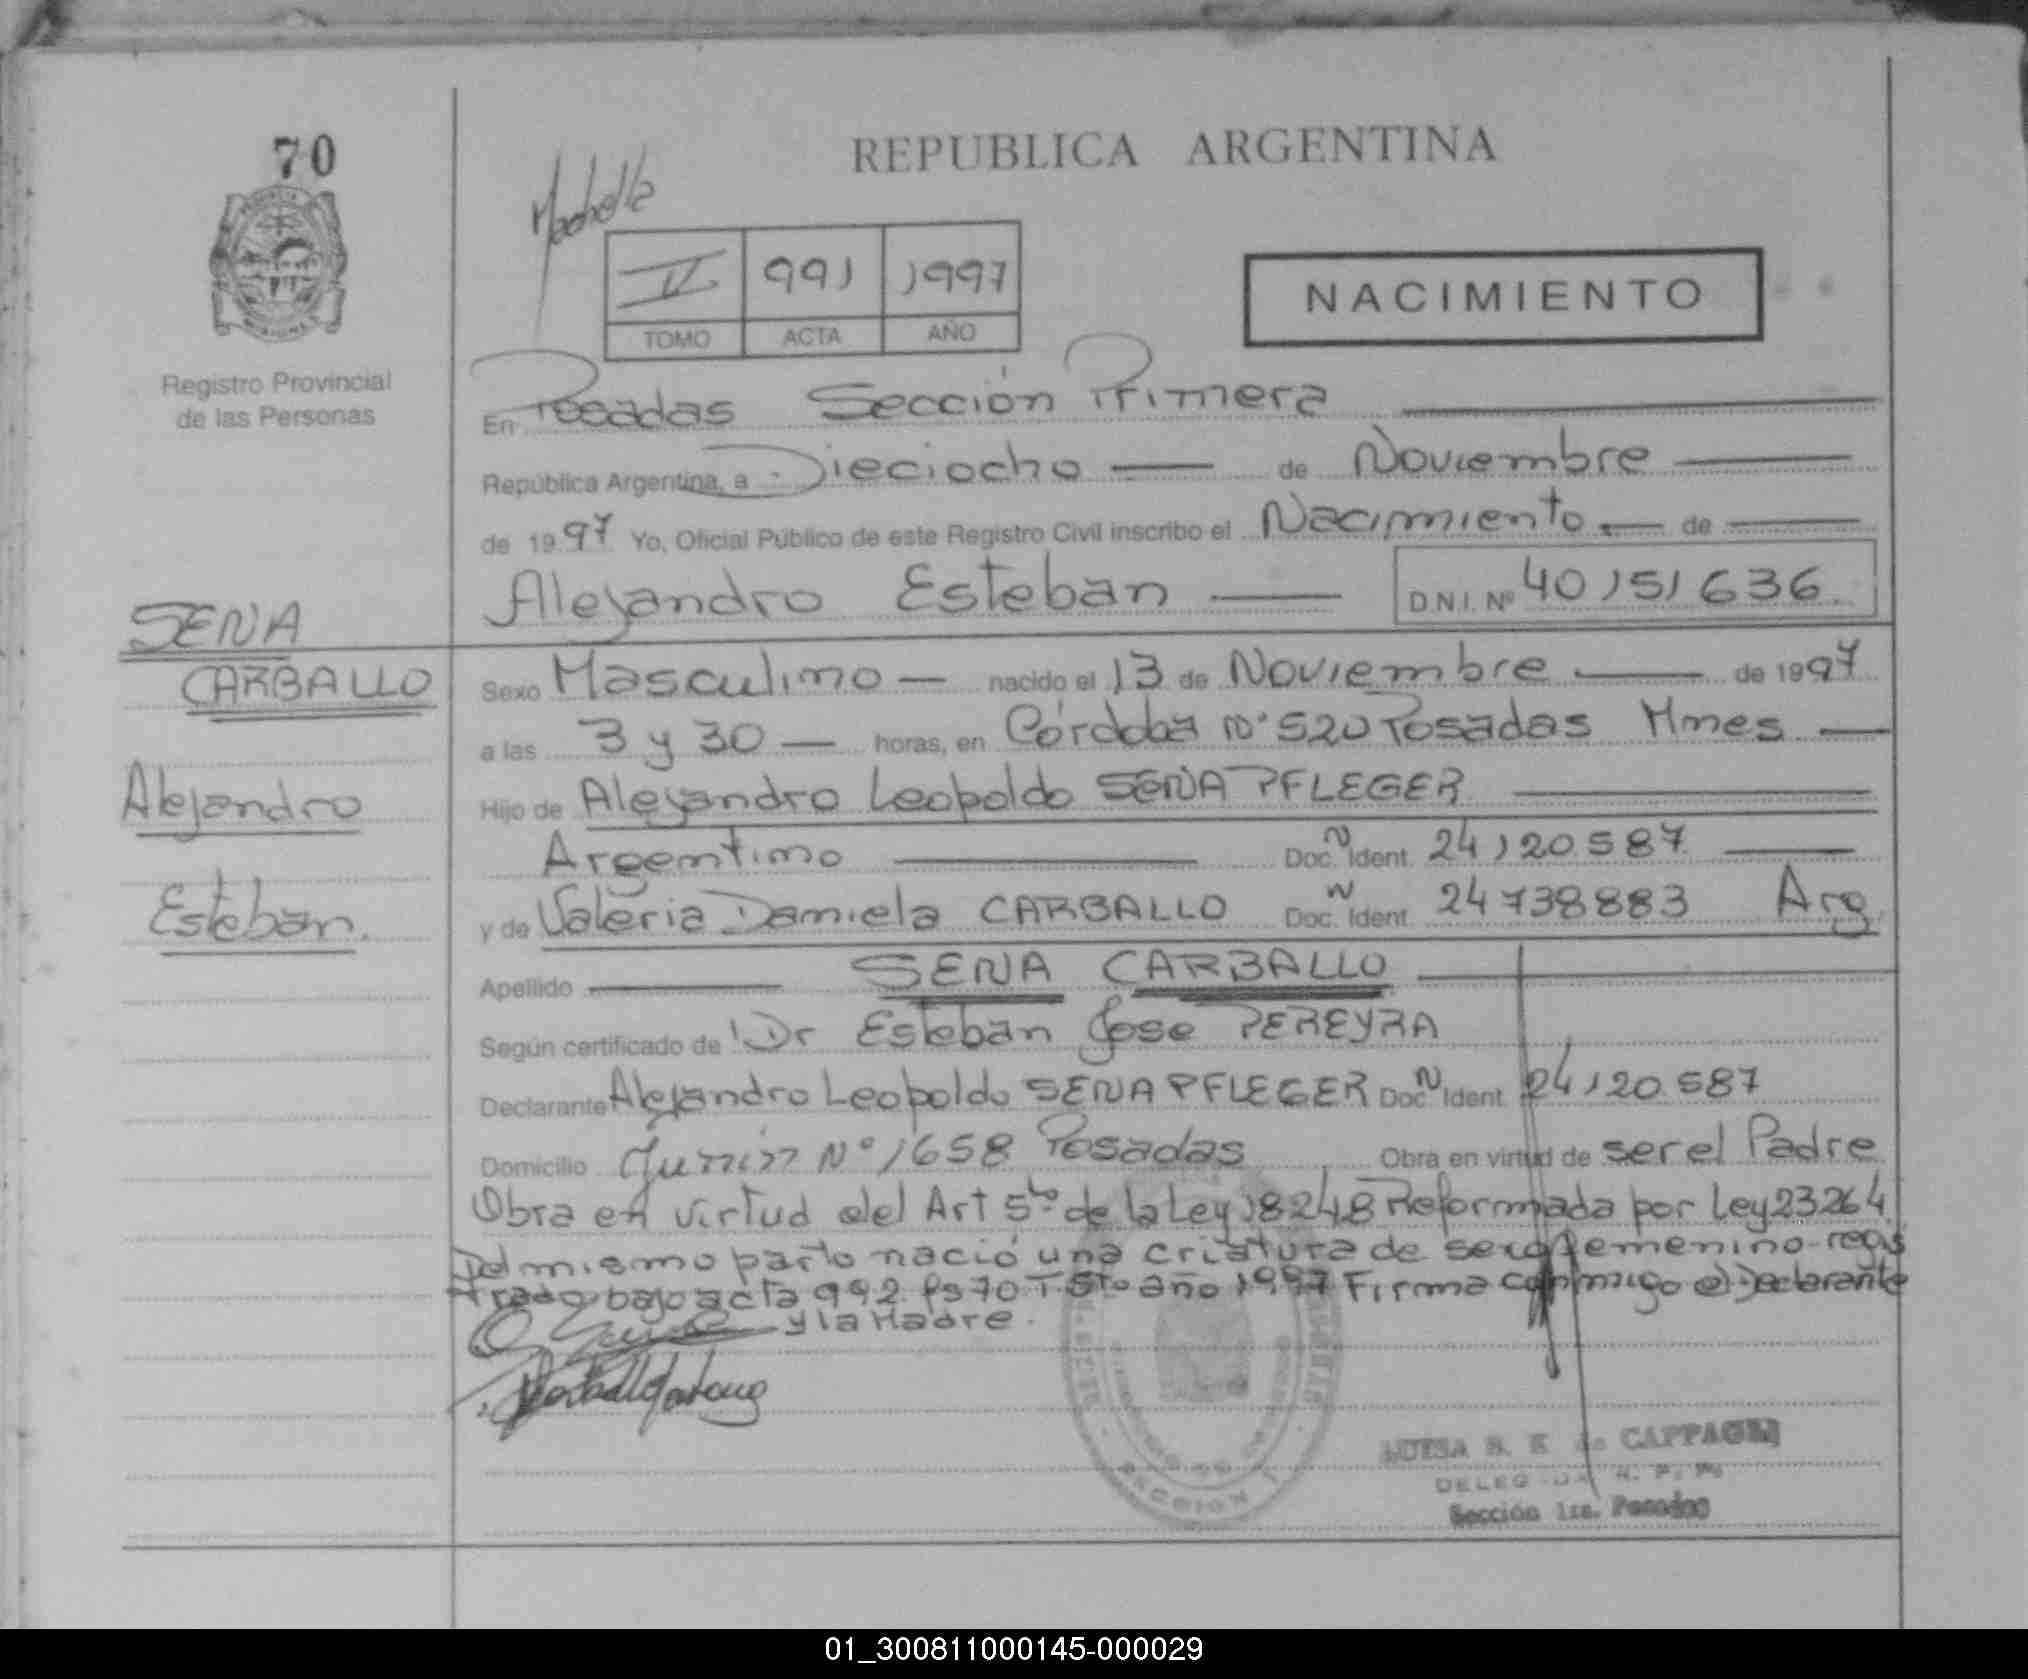 70
REPUBLICA ARGENTINA
V 991 1997
TOMO ACTA AÑO
NACIMIENTO
Registro Provincial
de las Personas
En Posadas Sección Primera
República Argentina, a Dieciocho de Noviembre
de 1997 Yo, Oficial Público de este Registro Civil inscribo el Nacimiento de
Alejandro Esteban D.N.I. Nº 40151636
SENA
CARBALLO
Alejandro
Esteban.
Sexo Masculino nacido el 13 de Noviembre de 1997
a las 3 y 30 horas, en Córdoba Nº 520 Posadas Mnes
Hijo de Alejandro Leopoldo SENA PFLEGER
Argentino Doc. N Ident. 24120587
y de Valeria Daniela CARBALLO Doc. N Ident. 24738883 Arg
Apellido SENA CARBALLO
Según certificado de Dr Esteban Jose PEREYRA
Declarante Alejandro Leopoldo SENA PFLEGER Doc. N Ident. 24120587
Domicilio Junín Nº 1658 Posadas Obra en virtud de ser el Padre
Obra en virtud del Art 5to de la Ley 18248 Reformada por Ley 23264
Del mismo parto nació una criatura de sexo femenino regis
trado bajo acta 992 Fs 70 T 5to año 1997 Firma conmigo el Declarante
y la Madre.
SECCION
CAPPAGLI
Sección 1ra. Posadas
01_300811000145-000029